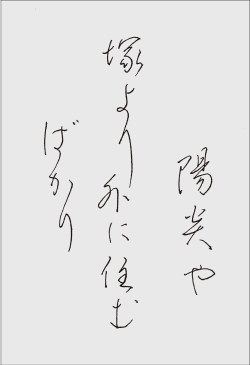 陽炎や
塚より外に住む
ばかり